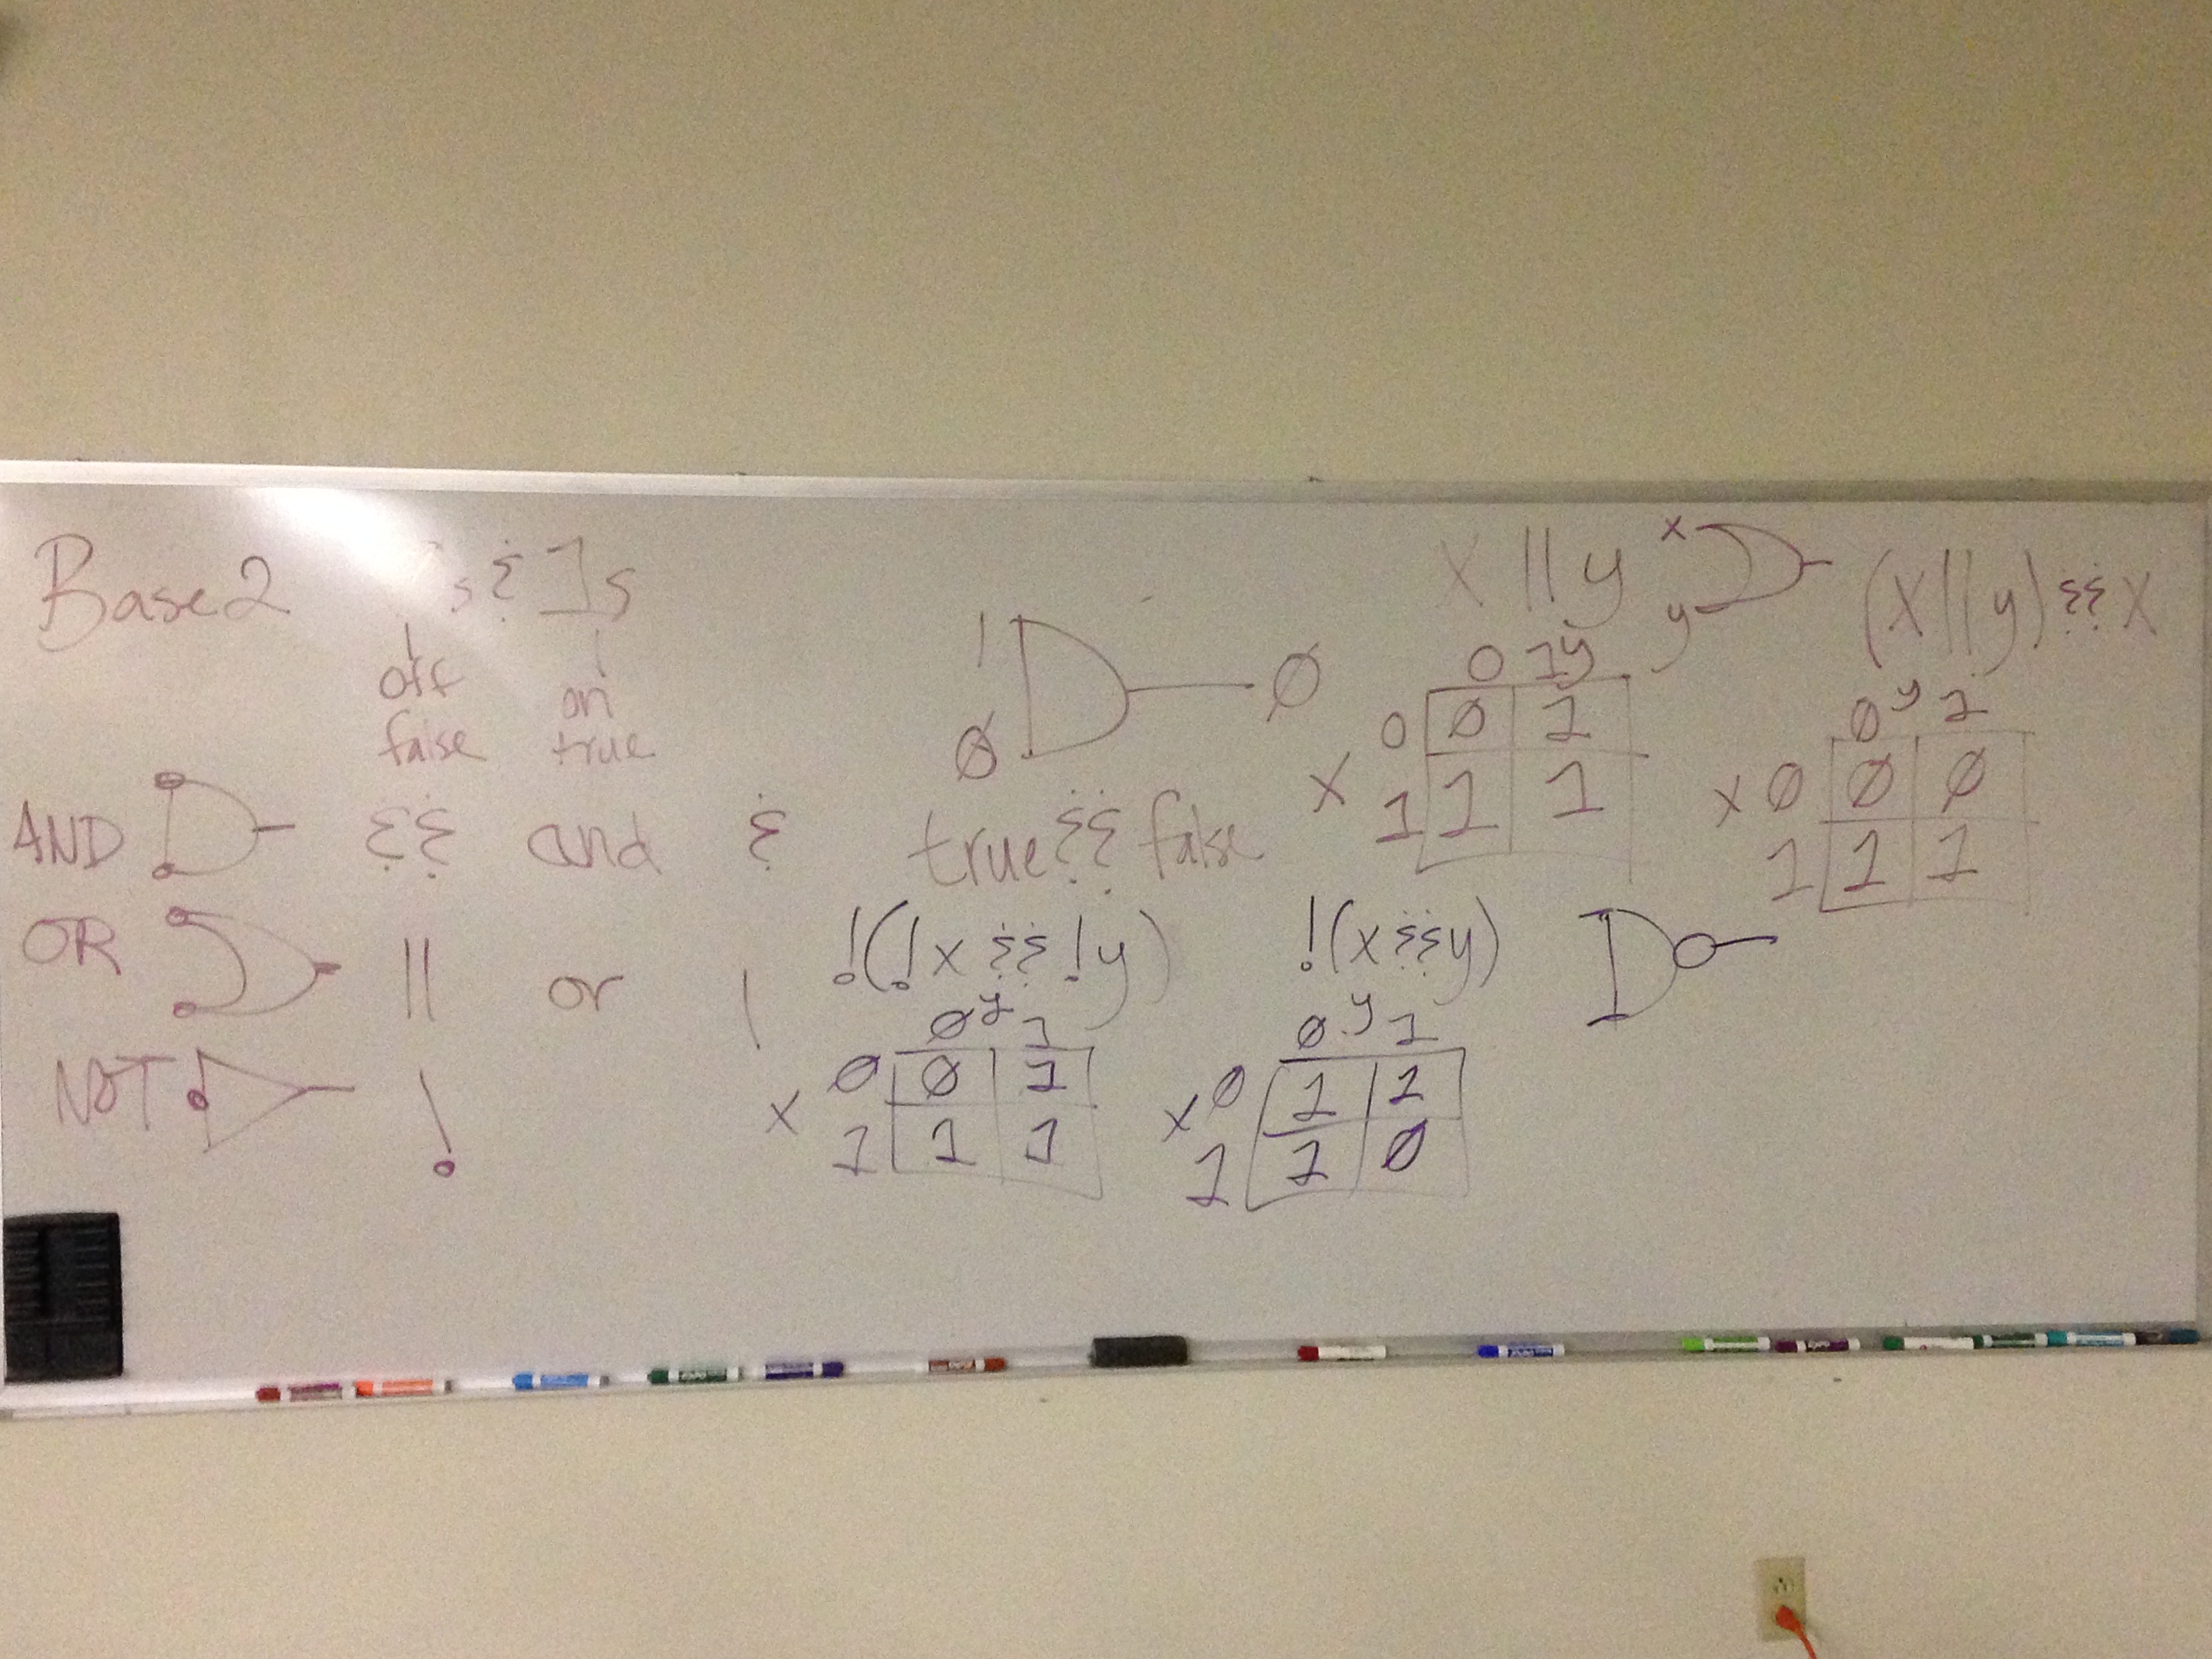 Base 2 s & 1s
off on
false true
AND && and &
OR || or |
NOT !
1
Ø Ø
true && false
x || y
x
y
0 1 y
0 Ø 1
x
1 1 1
(x || y) && x
Ø y 1
x Ø Ø Ø
1 1 1
!(!x && !y)
Ø y 1
Ø Ø 1
x
1 1 1
!(x && y)
Ø y 1
x Ø 1 1
1 1 Ø